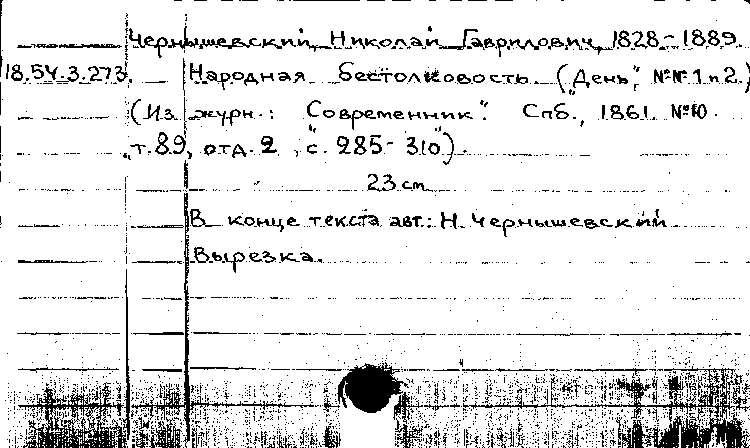 Чернышевский, Николай Гаврилович, 1828-1889.
18.54.3.273. Народная бестолковость. („День“, №№ 1 и 2.)
(Из журн.: „Современник“. Спб., 1861. №10.
т. 89, отд. 2, с. 285-310).
23 см
В конце текста авт.: Н. Чернышевский
Вырезка.